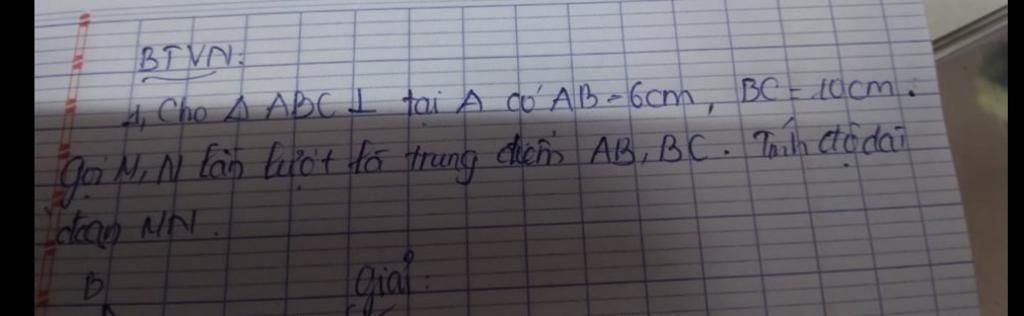 BTVN:
1, Cho Δ ABC ⊥ tại A có AB = 6cm, BC = 10cm.
gọi M, N lần lượt là trung điểm AB, BC. Tính độ dài
đoạn MN.
B giải: